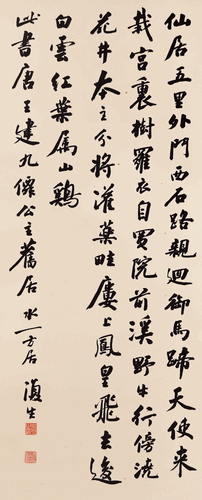 仙居五里外門西石路親迴御馬蹄天使來
栽宮裏樹羅衣自買院前溪野牛行傍澆
花井夲主分將灌藥畦廔上鳳皇飛去後
白雲紅葉属山鷄
此書唐王建九僊公主舊居 水一方居